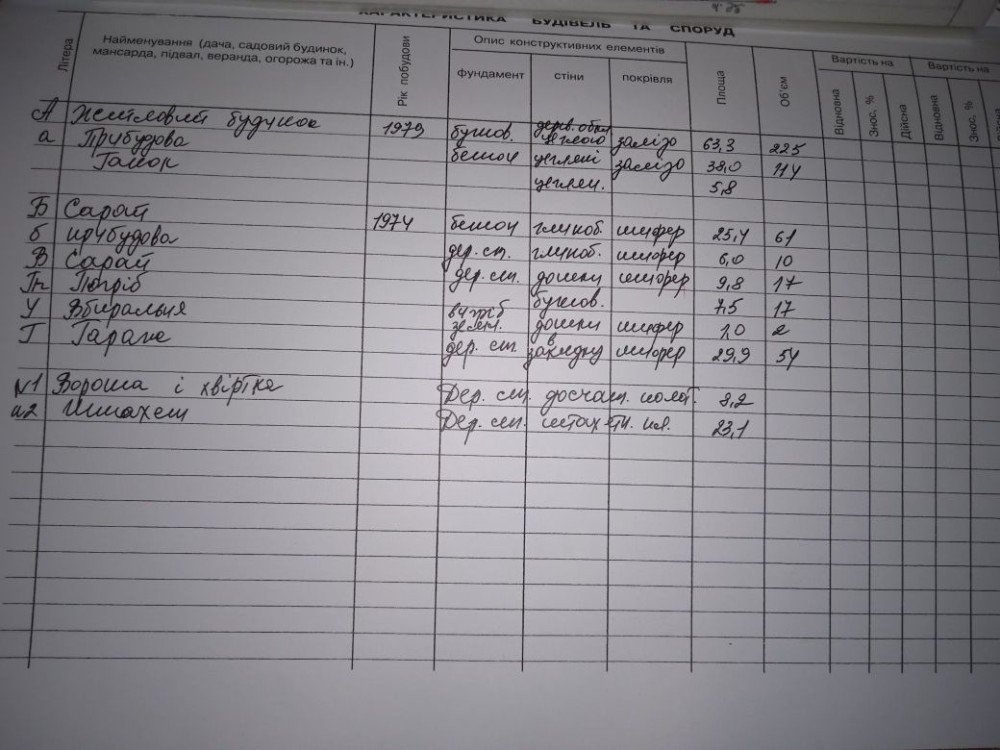 ХАРАКТЕРИСТИКА БУДІВЕЛЬ ТА СПОРУД
Літера
Найменування (дача, садовий будинок, мансарда, підвал, веранда, огорожа та ін.)
Рік побудови
Опис конструктивних елементів
фундамент стіни покрівля
Площа
Об'єм
Вартість на
Відновна Знос, % Дійсна
Вартість на
Відновна Знос, %
А Житловий будинок 1979 бутов. дерв. обкл. цеглою залізо 63,3 225
а Прибудова бетон цегляні залізо 38,0 114
Тамбор цеглян. 5,8
Б Сарай 1974 бетон глиноб. шифер 25,4 61
б прибудова дер. ст. глиноб. шифер 6,0 10
В Сарай дер. ст. дошки шифер 9,8 17
Пг Погріб бутов. 7,5 17
У Вбиральня вигріб земл. дошки шифер 1,0 2
Г Гараж дер. ст. в закидку шифер 29,9 54
N1 Ворота і хвіртка Дер. ст. дощат. полот. 8,2
N2 Штахет Дер. ст. штахетн. 23,1